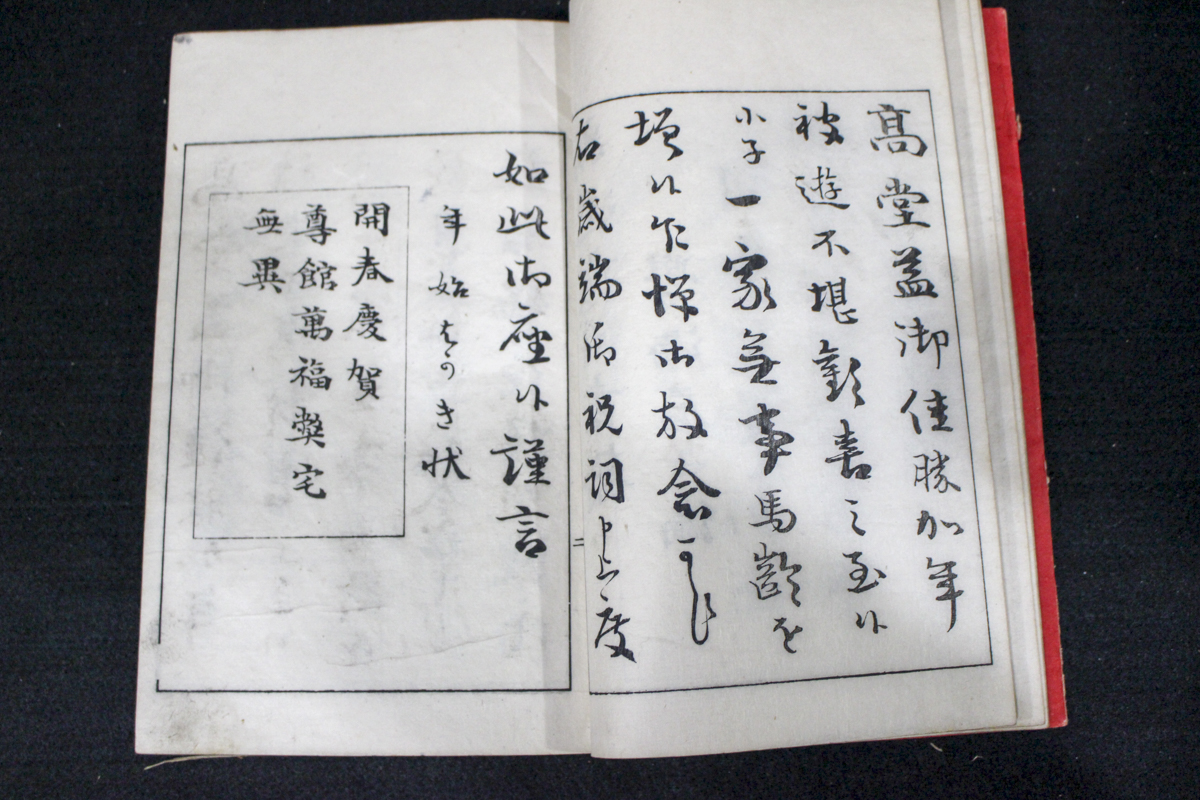 高堂益御佳勝加年
被遊不堪歓喜之至候
小子一家無事馬齢を
増候乍憚御放念可被下
右歳端御祝詞申上度
二
如此御座候謹言
年始はがき状
開春慶賀
尊館萬福弊宅
無異